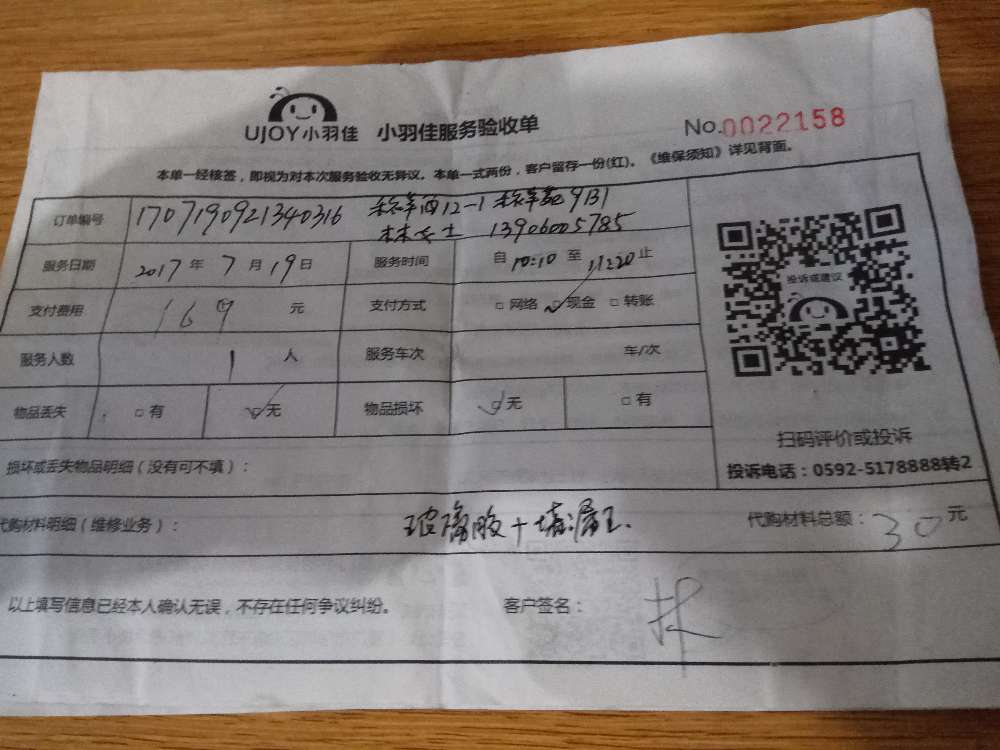 UJOY小羽佳 小羽佳服务验收单 No.0022158
本单一经核签，即视为对本次服务验收无异议。本单一式两份，客户留存一份(红)。《维保须知》详见背面。
订单编号 1707190921340316 12-1 9131
林女士 13906005785
服务日期 2017年7月19日 服务时间 自10:10至11:20止
投诉或建议
支付费用 169元 支付方式 □网络 ☑现金 □转账
服务人数 1人 服务车次 车/次
物品丢失 □有 ☑无 物品损坏 ☑无 □有
扫码评价或投诉
损坏或丢失物品明细（没有可不填）：
投诉电话：0592-5178888转2
代购材料明细（维修业务）： 玻璃胶+堵漏王. 代购材料总额：30元
以上填写信息已经本人确认无误，不存在任何争议纠纷。 客户签名：